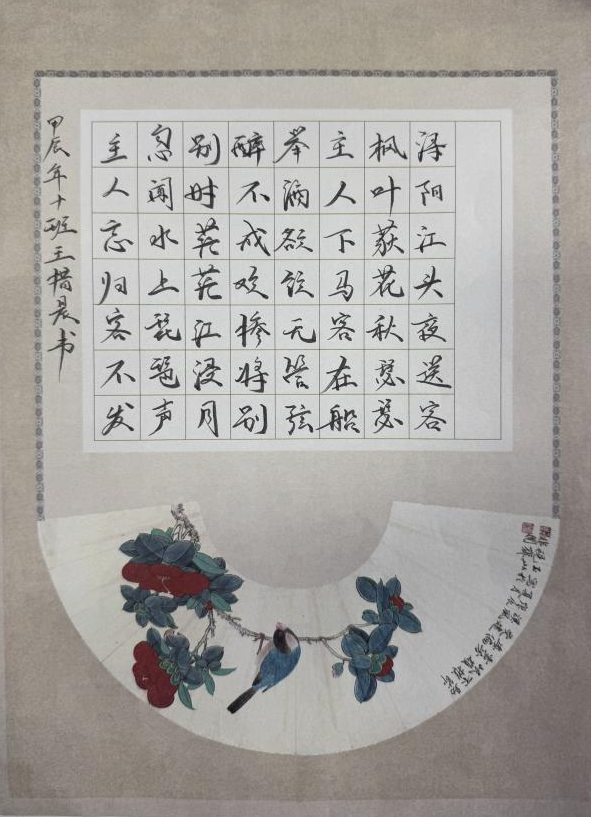 浔阳江头夜送客
枫叶荻花秋瑟瑟
主人下马客在船
举酒欲饮无管弦
醉不成欢惨将别
别时茫茫江浸月
忽闻水上琵琶声
主人忘归客不发
甲辰年十班王楷晨书